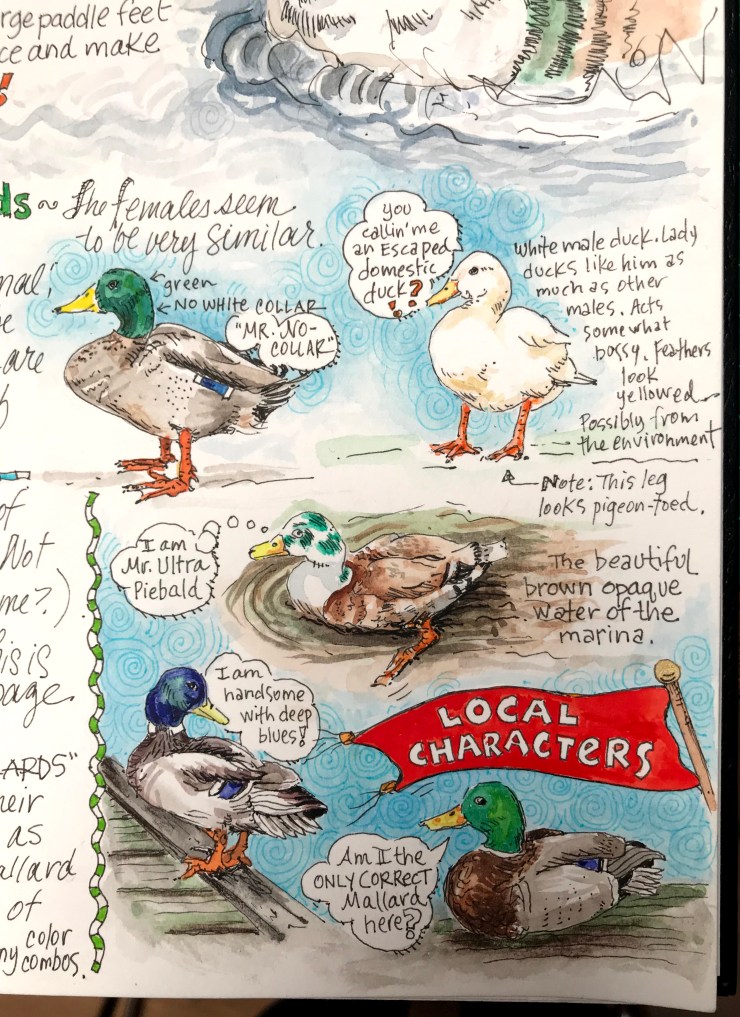 rge paddle feet
ce and make
!
ds ~ The females seem
to be very similar.
nal,
are
green
NO WHITE COLLAR
"MR. NO-
COLLAR"
you
callin' me
an Escaped
domestic
duck?!
White male duck. Lady
ducks like him as
much as other
males. Acts
somewhat
bossy. Feathers
look
yellowed
Possibly from
the environment
Note: This leg
looks pigeon-toed.
of
Not
me?.)
is is
page.
ARDS"
heir
as
allard
of
color
ny combos.
I am
Mr. Ultra
Piebald
The beautiful
brown opaque
water of the
marina.
I am
handsome
with deep
blues!
LOCAL
CHARACTERS
Am I the
ONLY CORRECT
Mallard
here?